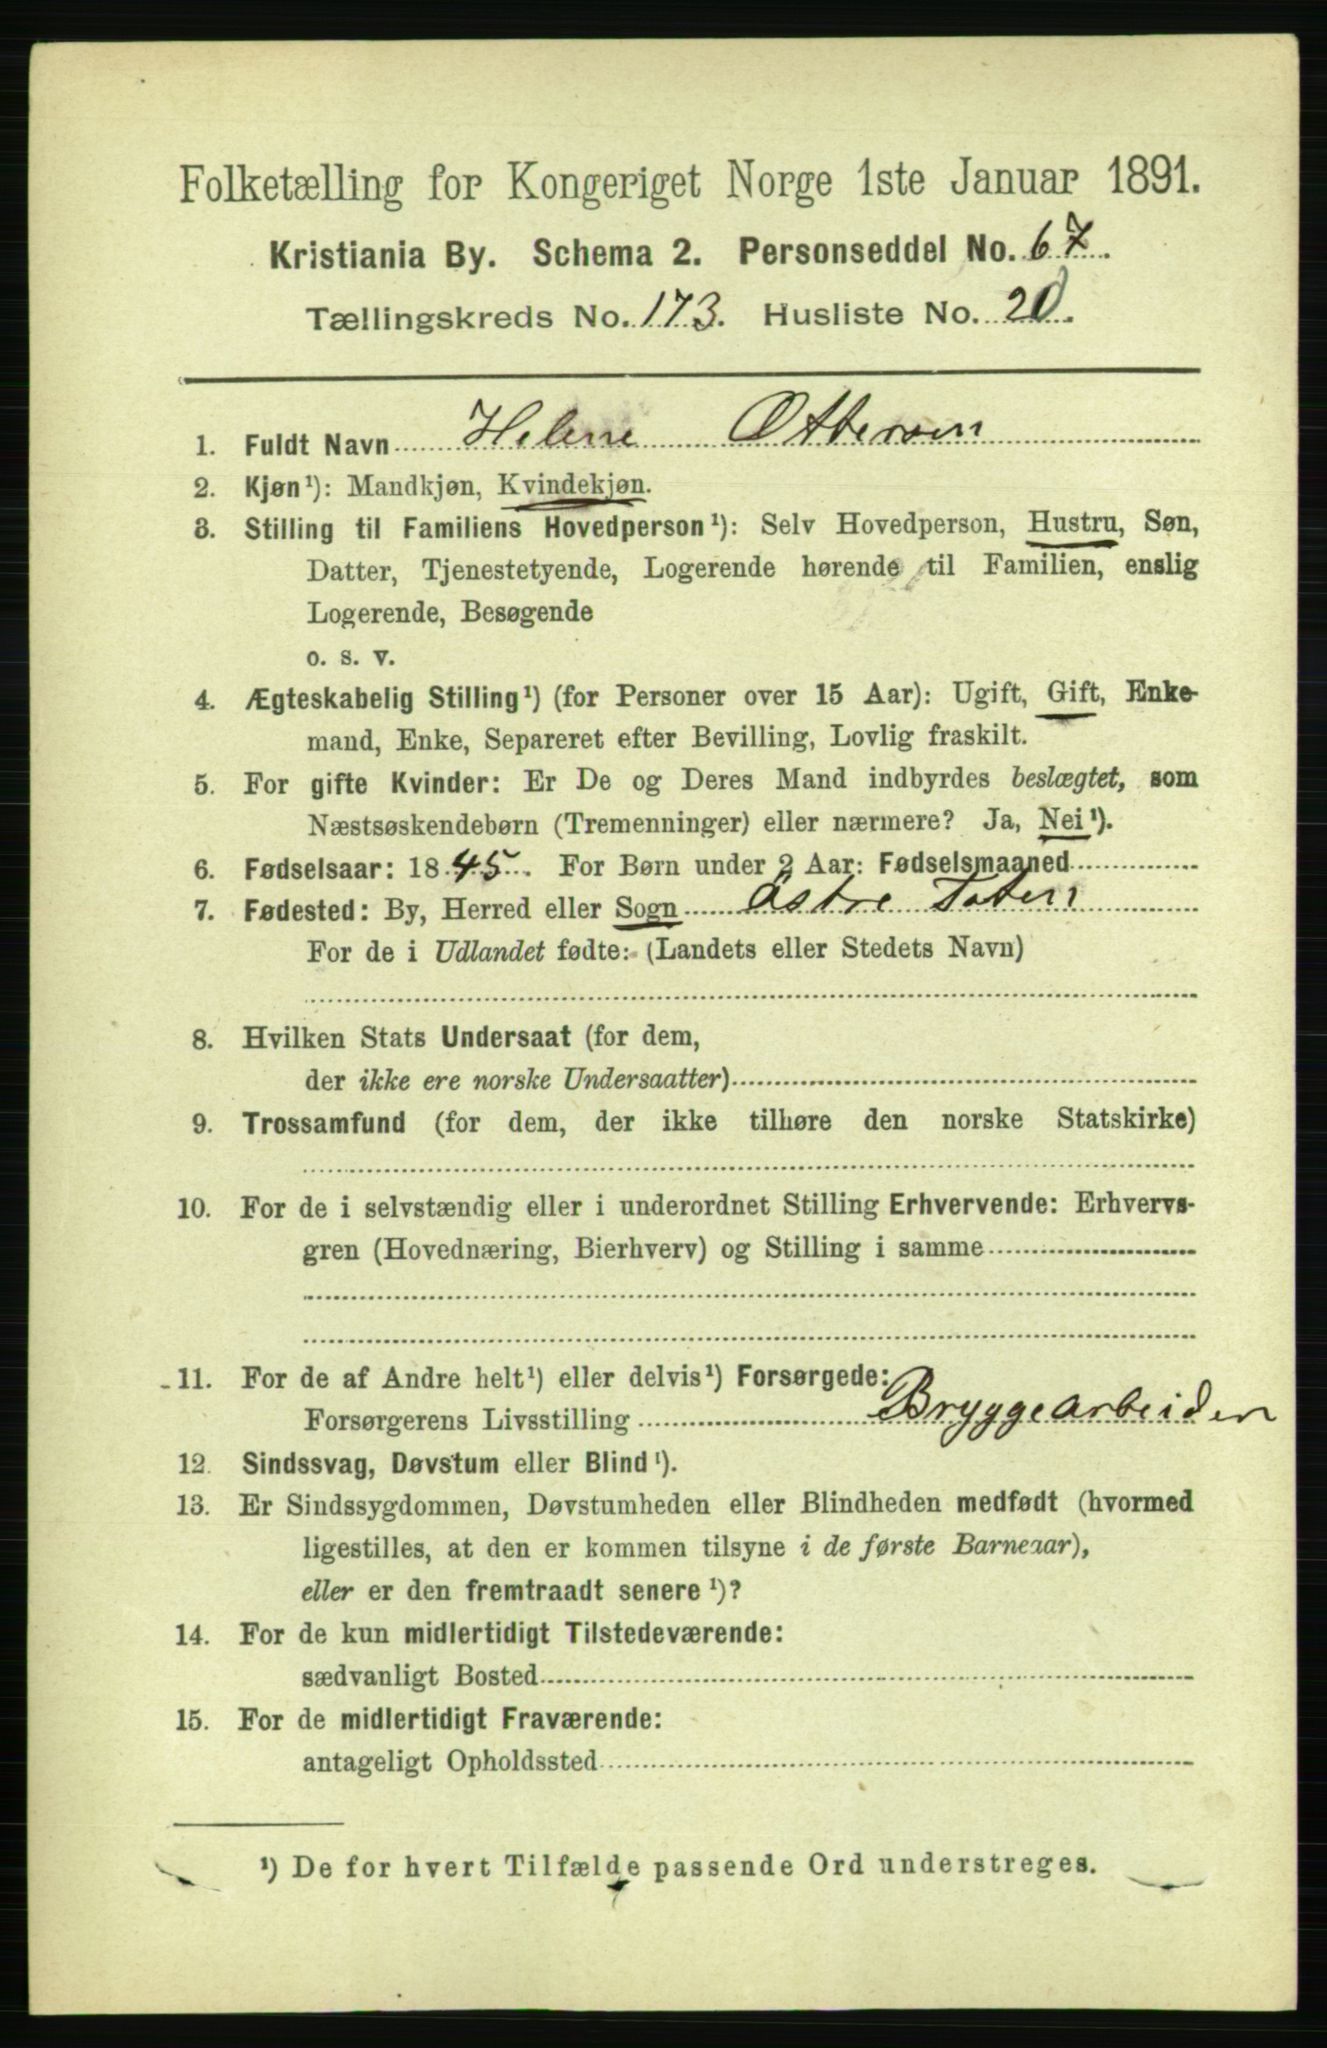 Folketælling for Kongeriget Norge 1ste Januar 1891.
Kristiania By. Schema 2. Personseddel No. 67.
Tællingskreds No. 173. Husliste No. 20.
1. Fuldt Navn Helene Ottersen
2. Kjøn¹): Mandkjøn, Kvindekjøn.
3. Stilling til Familiens Hovedperson¹): Selv Hovedperson, Hustru, Søn,
Datter, Tjenestetyende, Logerende hørende til Familien, enslig
Logerende, Besøgende
o. s. v.
4. Ægteskabelig Stilling¹) (for Personer over 15 Aar): Ugift, Gift, Enke-
mand, Enke, Separeret efter Bevilling, Lovlig fraskilt.
5. For gifte Kvinder: Er De og Deres Mand indbyrdes beslægtet, som
Næstsøskendebørn (Tremenninger) eller nærmere? Ja, Nei¹).
6. Fødselsaar: 1845. For Børn under 2 Aar: Fødselsmaaned
7. Fødested: By, Herred eller Sogn Østre Toten
For de i Udlandet fødte: (Landets eller Stedets Navn)
8. Hvilken Stats Undersaat (for dem,
der ikke ere norske Undersaatter)
9. Trossamfund (for dem, der ikke tilhøre den norske Statskirke)
10. For de i selvstændig eller i underordnet Stilling Erhvervende: Erhvervs-
gren (Hovednæring, Bierhverv) og Stilling i samme
11. For de af Andre helt¹) eller delvis¹) Forsørgede:
Forsørgerens Livsstilling Bryggearbeider
12. Sindssvag, Døvstum eller Blind¹).
13. Er Sindssygdommen, Døvstumheden eller Blindheden medfødt (hvormed
ligestilles, at den er kommen tilsyne i de første Barneaar),
eller er den fremtraadt senere¹)?
14. For de kun midlertidigt Tilstedeværende:
sædvanligt Bosted
15. For de midlertidigt Fraværende:
antageligt Opholdssted
¹) De for hvert Tilfælde passende Ord understreges.